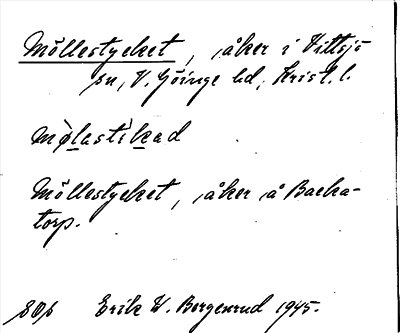 Möllestycket, åker i Vittsjö
sn, V. Göinge hd, Krist. l.
mø̀lastìkad
Möllestycket, åker å Backa-
torp.
Erik W. Borgenrud 1945.